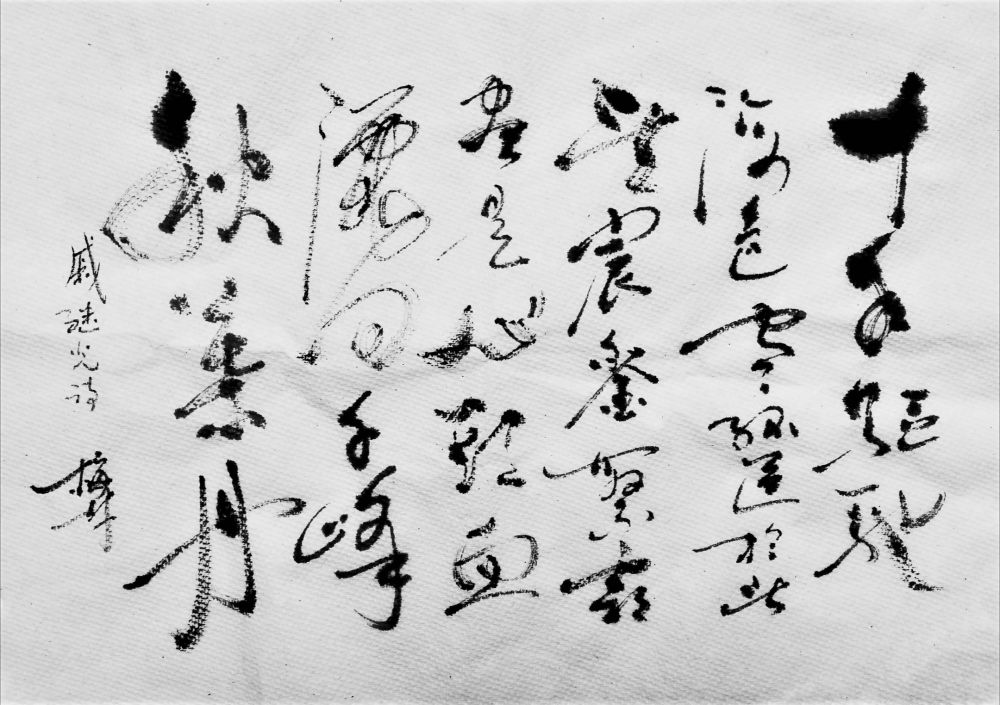 十年驅馳
海色寒孤臣於此
望宸鑾繁霜
盡是心頭血
灑向千峰
秋葉丹
戚継光詩